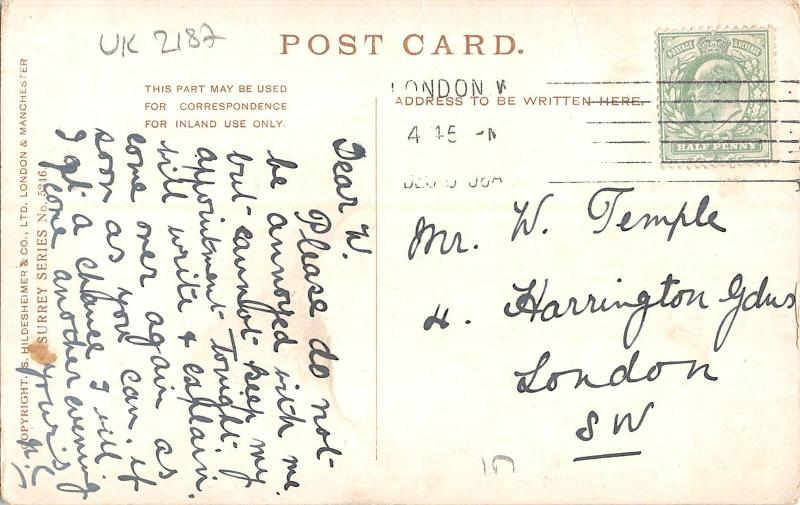 UK 2187
POST CARD.
THIS PART MAY BE USED
FOR CORRESPONDENCE
FOR INLAND USE ONLY.
ADDRESS TO BE WRITTEN HERE.
LONDON W
4 45 -M
DEC 08A
POSTAGE REVENUE
HALF PENNY
COPYRIGHT. S. HILDESHEIMER & CO., LTD. LONDON & MANCHESTER
SURREY SERIES No. 5246
Dear W.
Please do not
be annoyed with me
but cannot keep my
appointment tonight.
will write & explain.
come over again as
soon as you can. if
I get a chance I will
come another evening
yours
Mr. W. Temple
4. Harrington Gdns
London
SW